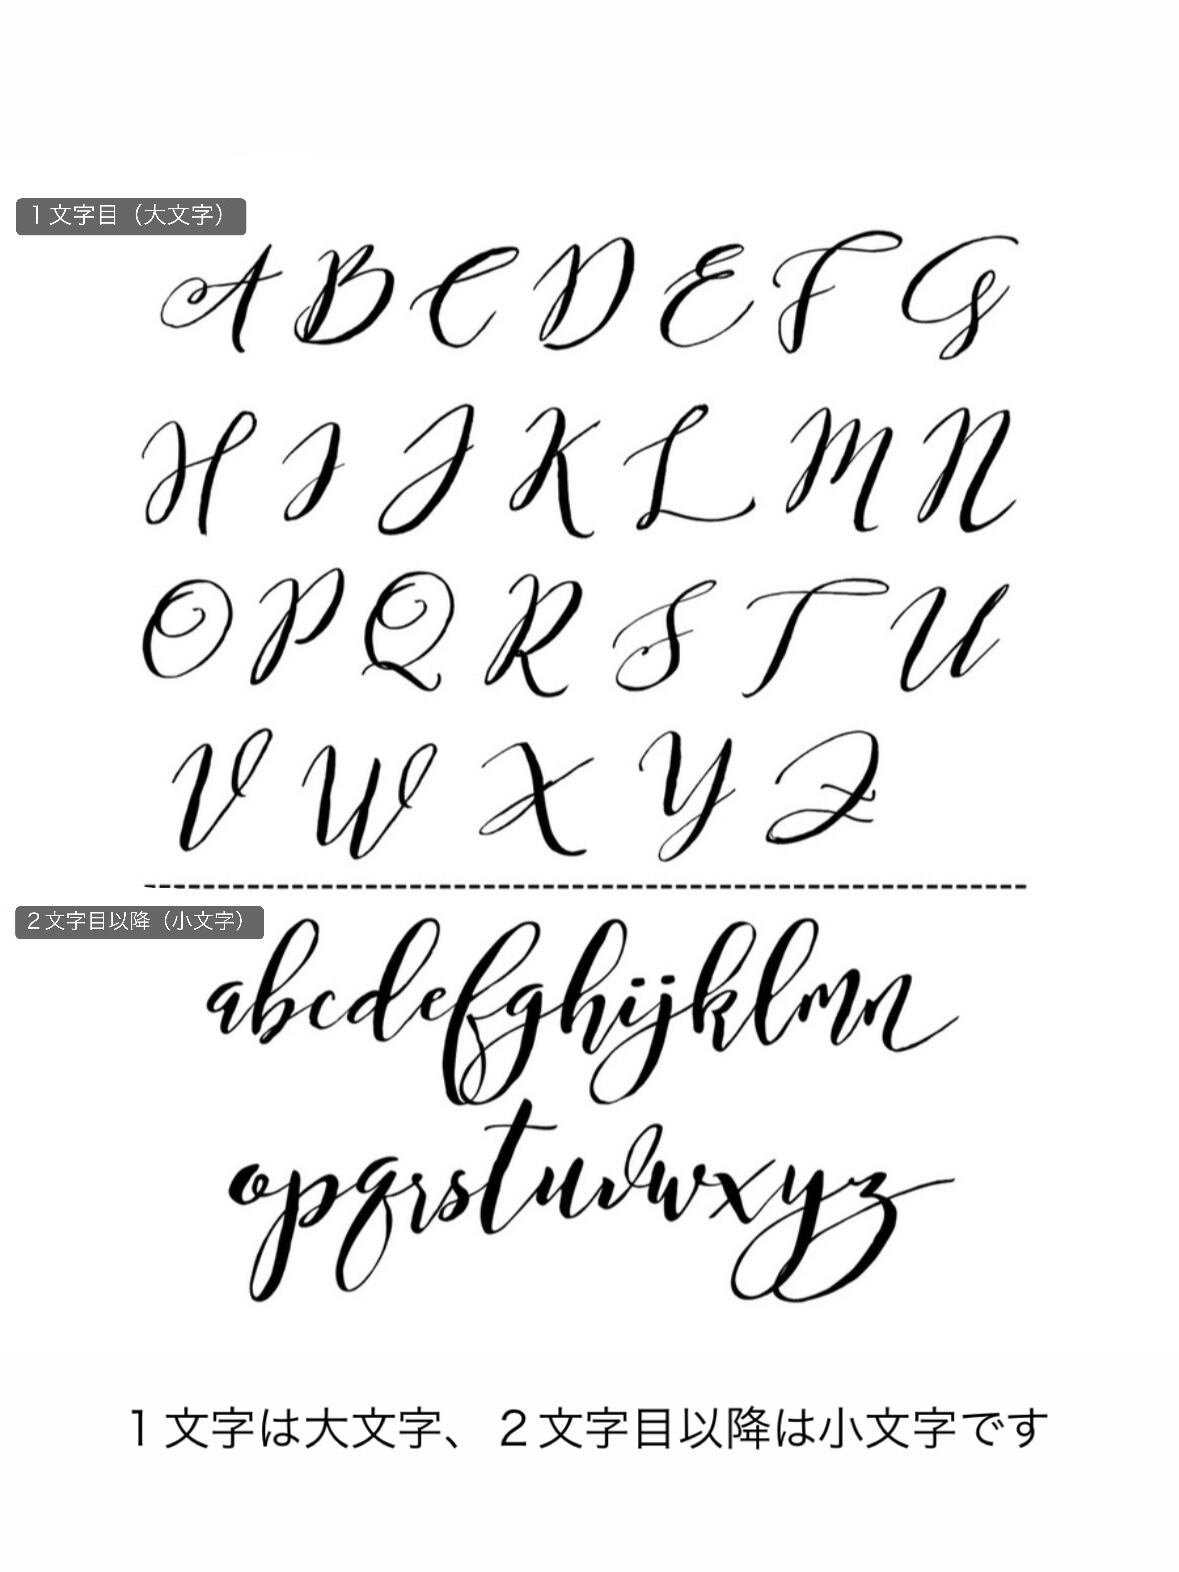 １文字目（大文字）
A B C D E F G
H I J K L M N
O P Q R S T U
V W X Y Z
２文字目以降（小文字）
abcdefghijklmn
opqrstuvwxyz
１文字は大文字、２文字目以降は小文字です